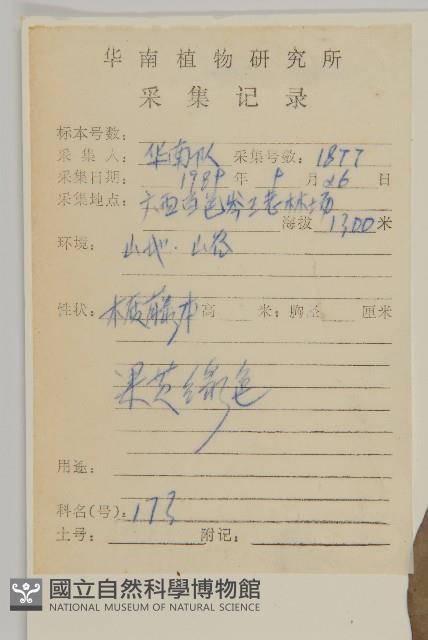 华南植物研究所
采集记录
标本号数：
采集人：华南队 采集号数：1877
采集日期：1989年9月26日
采集地点：广西百色岑王老林场
海拔1300米
环境：山地·山谷
性状：木质藤本 高 米；胸径 厘米
果黄绿色
用途：
科名(号)：173
土号： 附记：
國立自然科學博物館
NATIONAL MUSEUM OF NATURAL SCIENCE